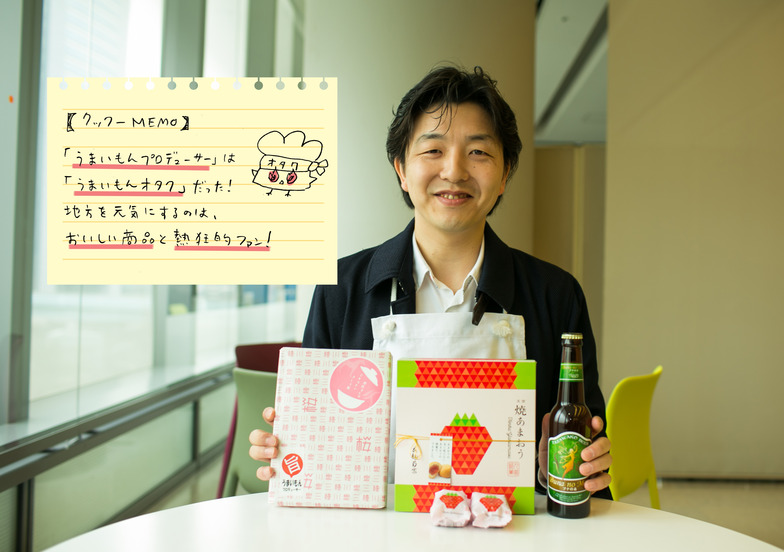 【クックーMEMO】
「うまいもんプロデューサー」は
「うまいもんオタク」だった!
地方を元気にするのは、
おいしい商品と熱狂的ファン!
オタク
桜
桜
旨
うまいもん
焼あまおう